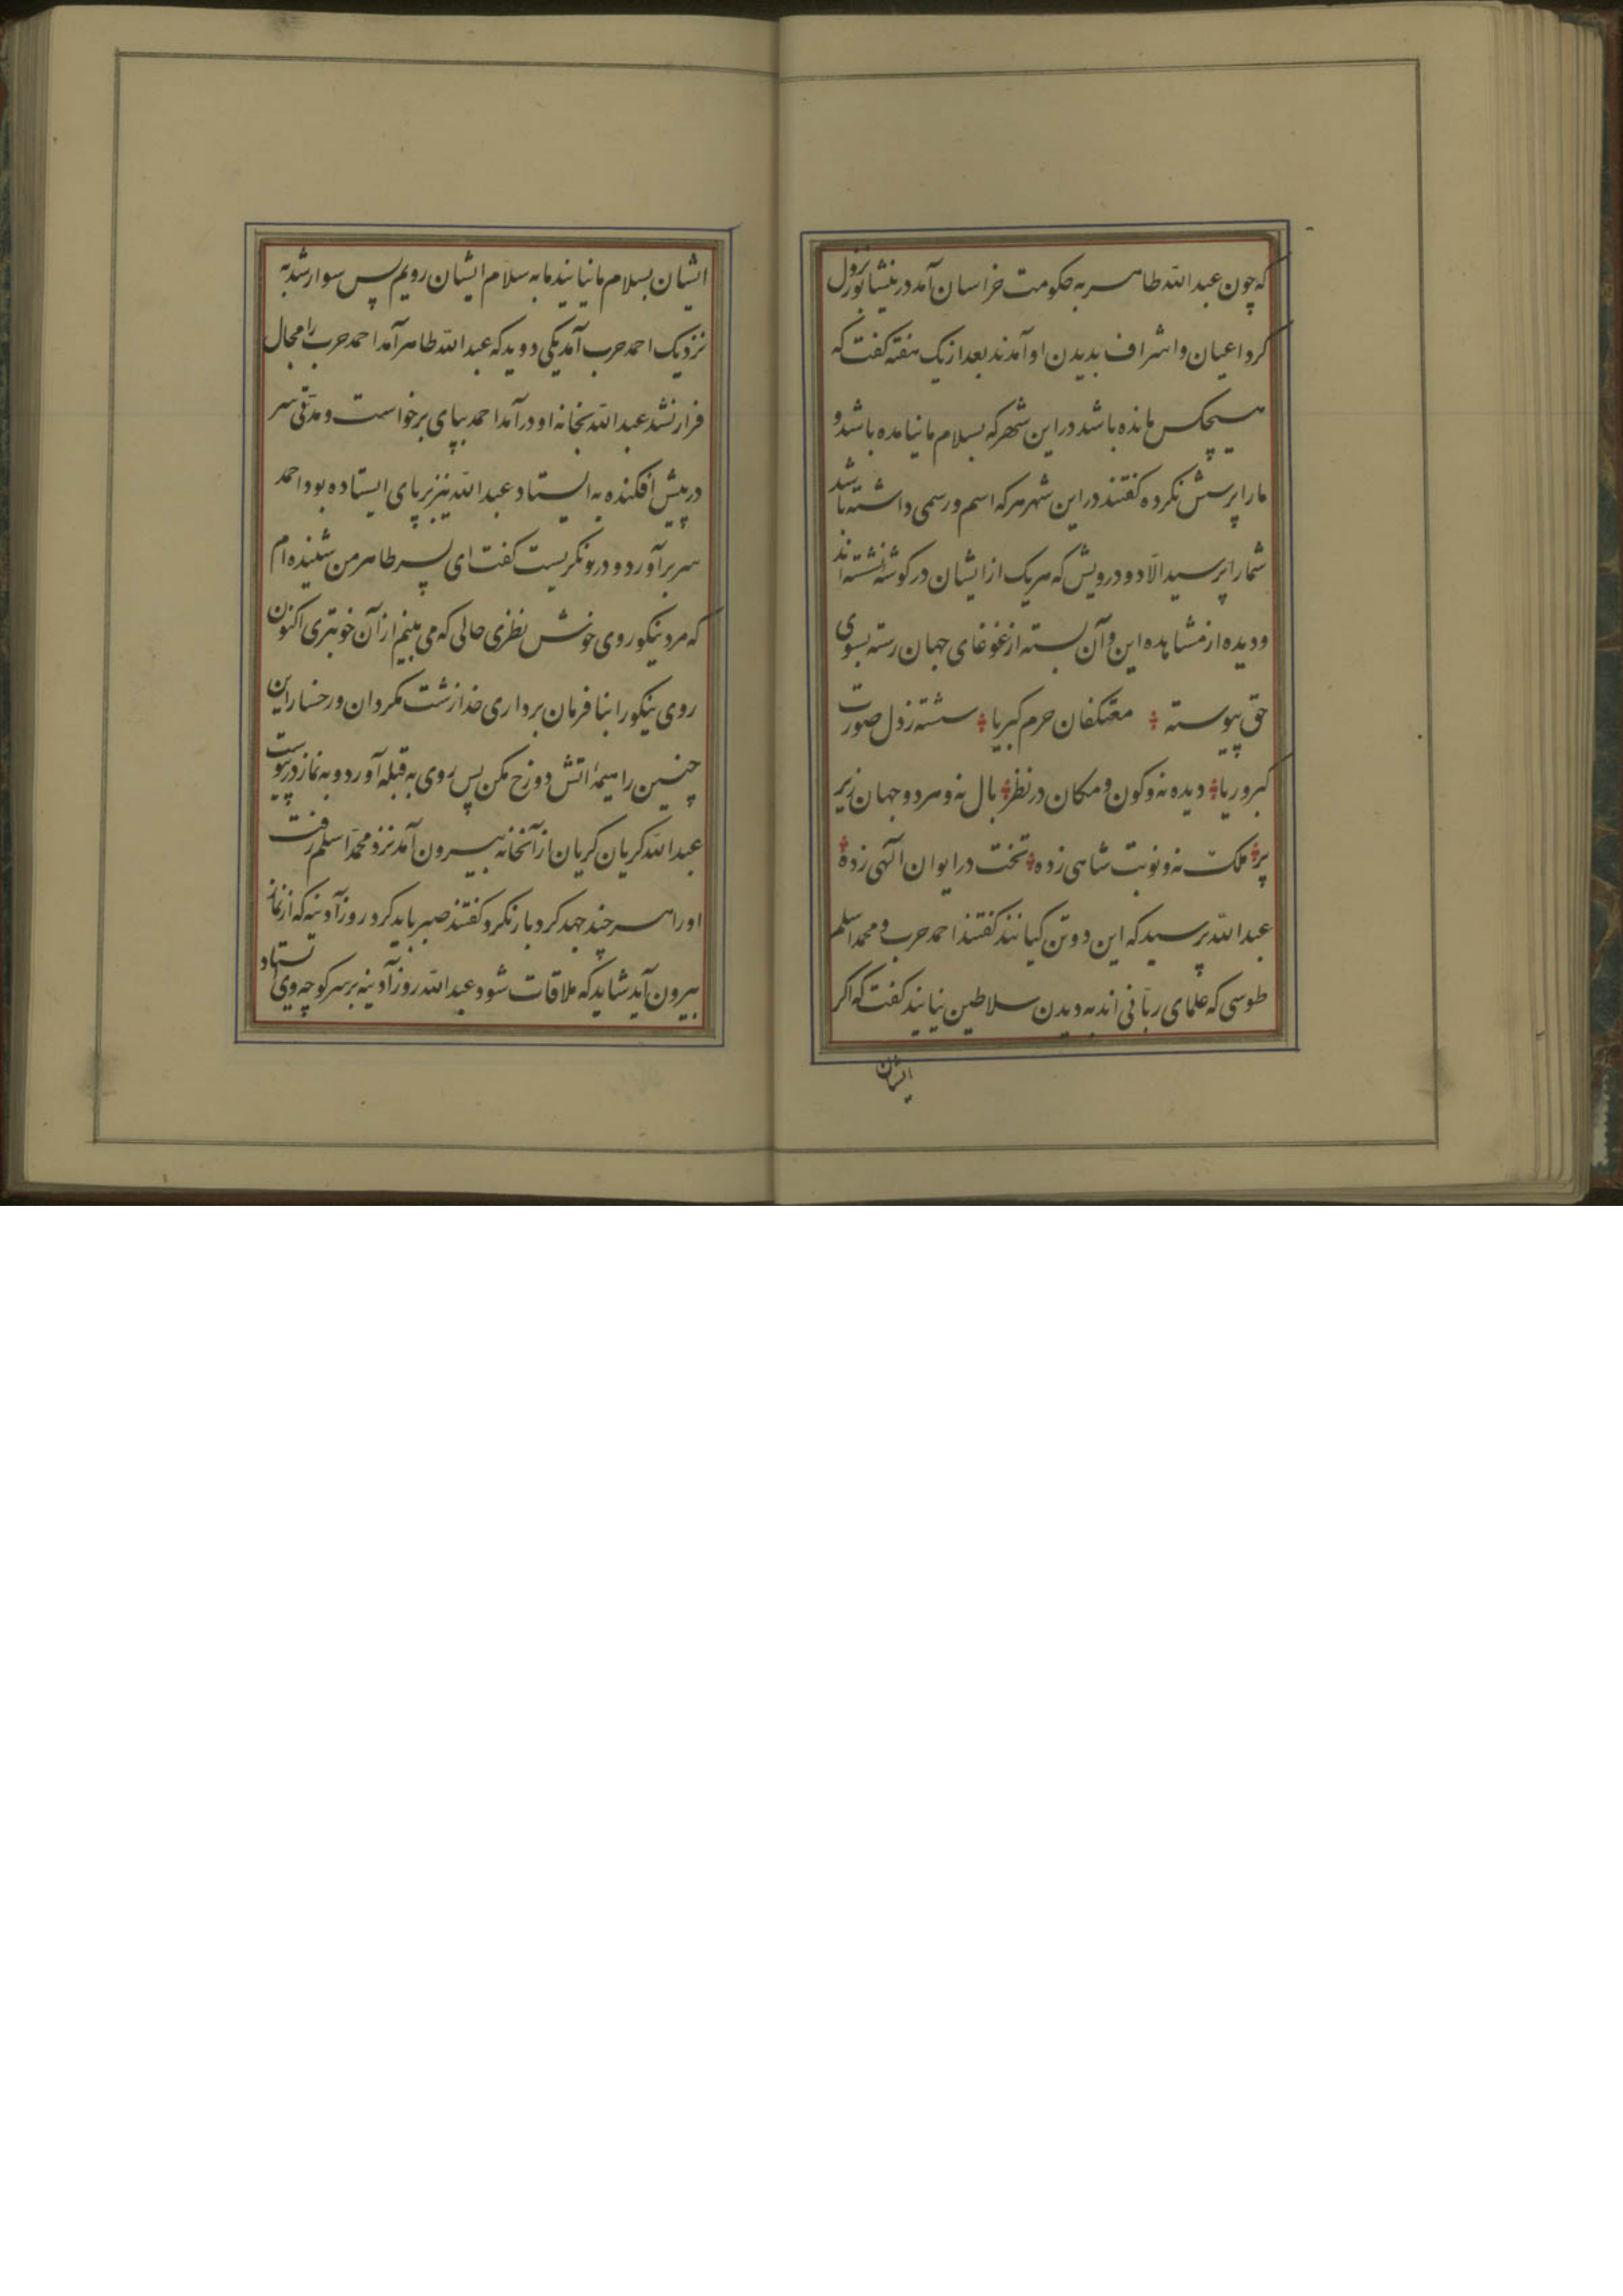 که چون عبدالله طاهر به حکومت خراسان آمد در نیشابور نزول
کرد اعیان و اشراف بدیدن او آمدند بعد از یک هفته کفت که
هیچکس مانده باشد در این شهر که بسلام ما نیامده باشد و
ما را پرسش نکرده کفتند در این شهر هرکه اسم و رسمی داشته باشد
شما را پرسید الّا دو درویش که هر یک از ایشان در کوشه نشسته‌اند
و دیده از مشاهده این و آن بسته از غوغای جهان رسته بسوی
حق پیوسته معتکفان حرم کبریا شسته ز دل صورت
کبر و ریا دیده نه و کون و مکان در نظر بال نه و هر دو جهان زیر
پر ملک نه و نوبت شاهی زده تخت در ایوان الهی زده
عبدالله پرسید که این دو تن کیانند کفتند احمد حرب و محمد اسلم
طوسی که علمای ربّانی اند به دیدن سلاطین نیایند کفت که اکر
ایشان
ایشان بسلام ما نیایند ما به سلام ایشان رویم پس سوار شد به
نزدیک احمد حرب آمد یکی دوید که عبدالله طاهر آمد احمد حرب را مجال
فرار نشد عبدالله بخانه او درآمد احمد بپای برخواست و مدّتی سر
در پیش افکنده به ایستاد عبدالله نیز بر پای ایستاده بود احمد
سر برآورد و در و نکریست کفت ای پسر طاهر من شنیده‌ام
که مرد نیکو روی خوش نظری حالی که می بینم از آن خوبتری اکنون
روی نیکو را بنا فرمان برداری خدا زشت مکردان و رخسار این
چنین را هیمهٔ اتش دوزخ مکن پس روی به قبله آورد و به نماز در پیوست
عبدالله کریان کریان از آنخانه بیرون آمد نزد محمد اسلم رفت
او را هر چند جهد کرد بار نکرد کفتند صبر باید کرد روز آدینه که از نماز
بیرون آید شاید که ملاقات شود عبدالله روز آدینه بر سر کوچه وی ایستاد